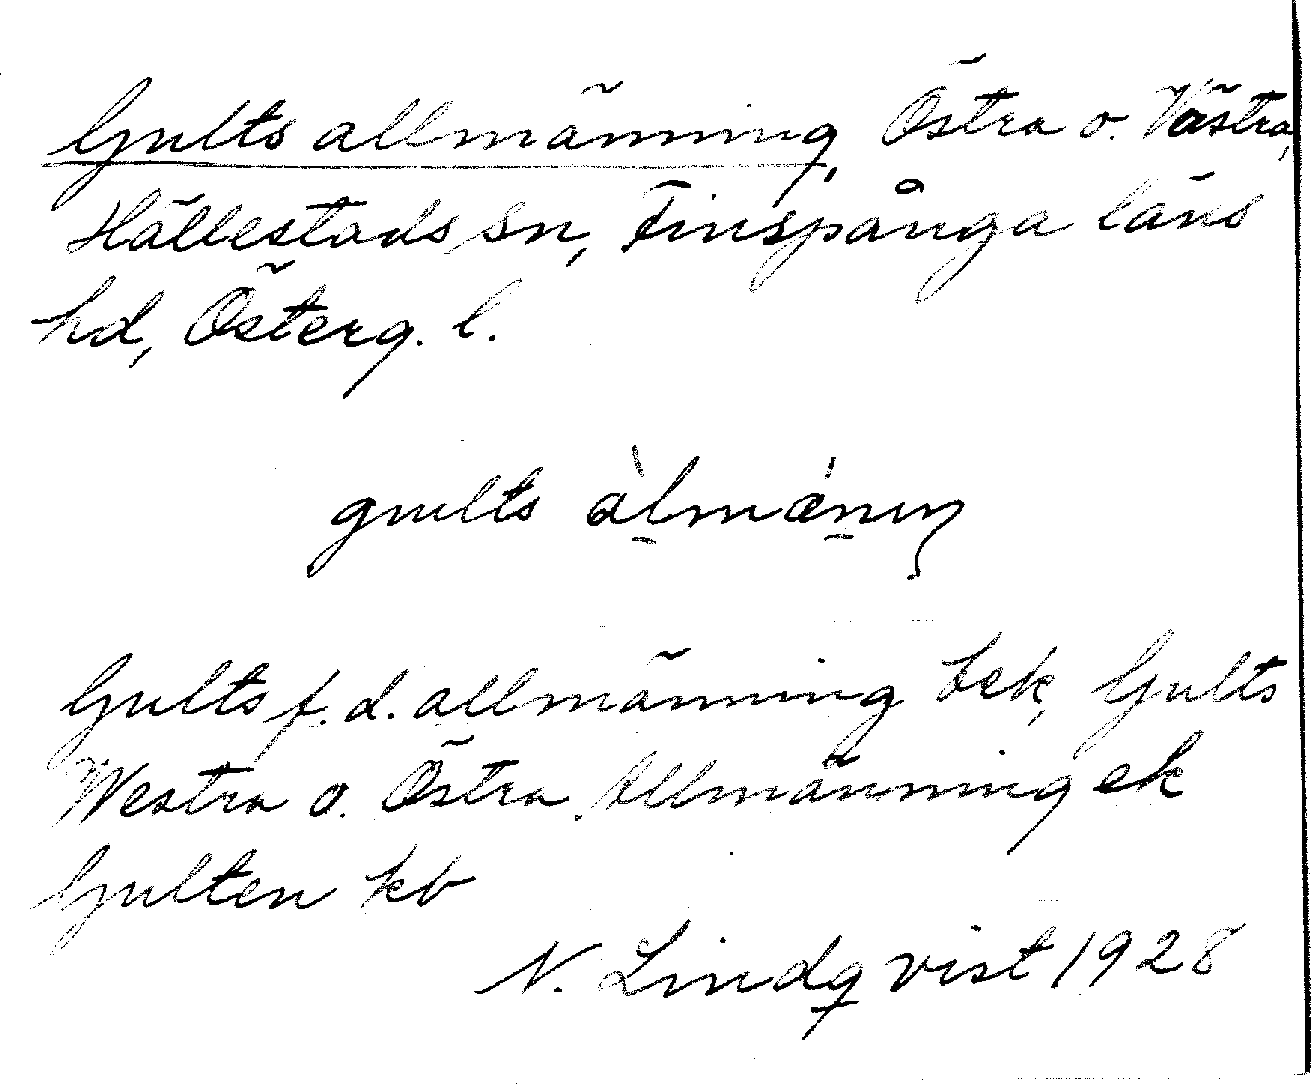 Gults allmänning, Östra o. Västra,
Hällestads sn, Finspånga läns
hd, Österg. l.
gults àlmǽnıŋ
Gults f.d. allmänning bek, Gults
Westra o. Östra Allmänning ek
Gulten kb
N. Lindqvist 1928